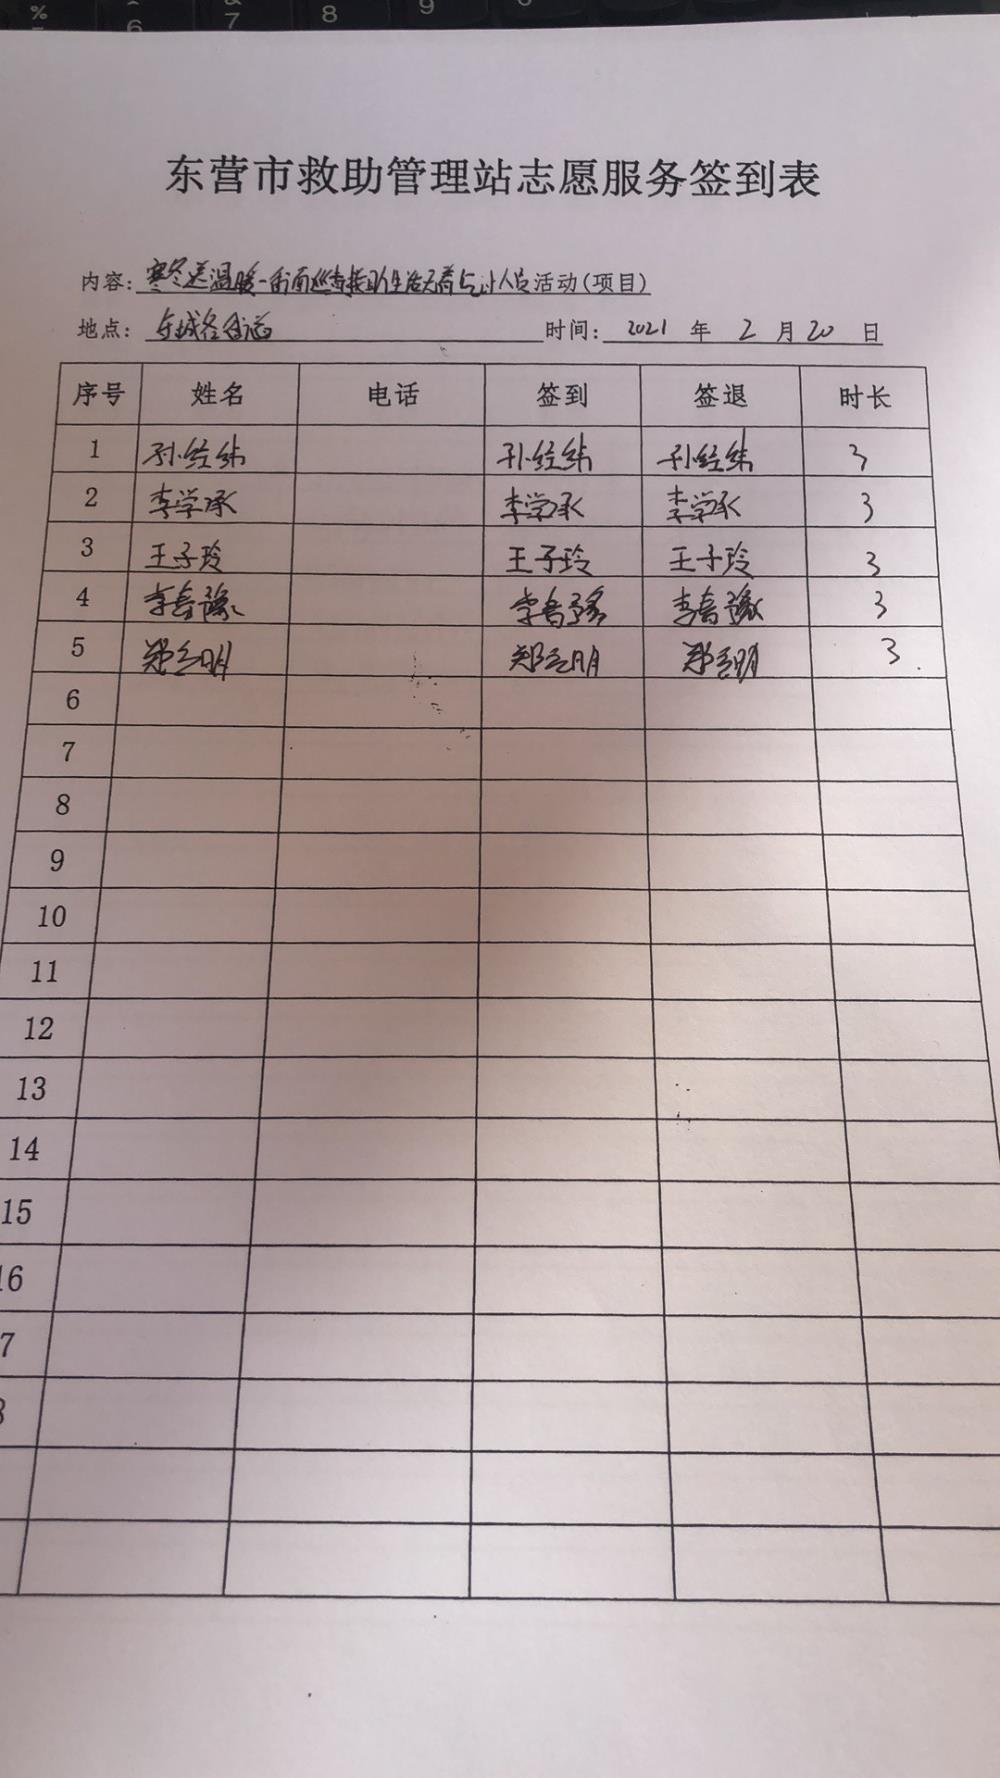 % 6 & 7 8 9
东营市救助管理站志愿服务签到表
内容: 寒冬送温暖-街面巡查救助生活无着乞讨人员活动(项目)
地点: 东城各街道 时间: 2021 年 2 月 20 日
序号 姓名 电话 签到 签退 时长
1 孙经纬 孙经纬 孙经纬 3
2 李学承 李学承 李学承 3
3 王子玲 王子玲 王子玲 3
4 李春豫 李春豫 李春豫 3
5 郑立明 郑立明 郑立明 3
6
7
8
9
10
11
12
13
14
15
16
7
8